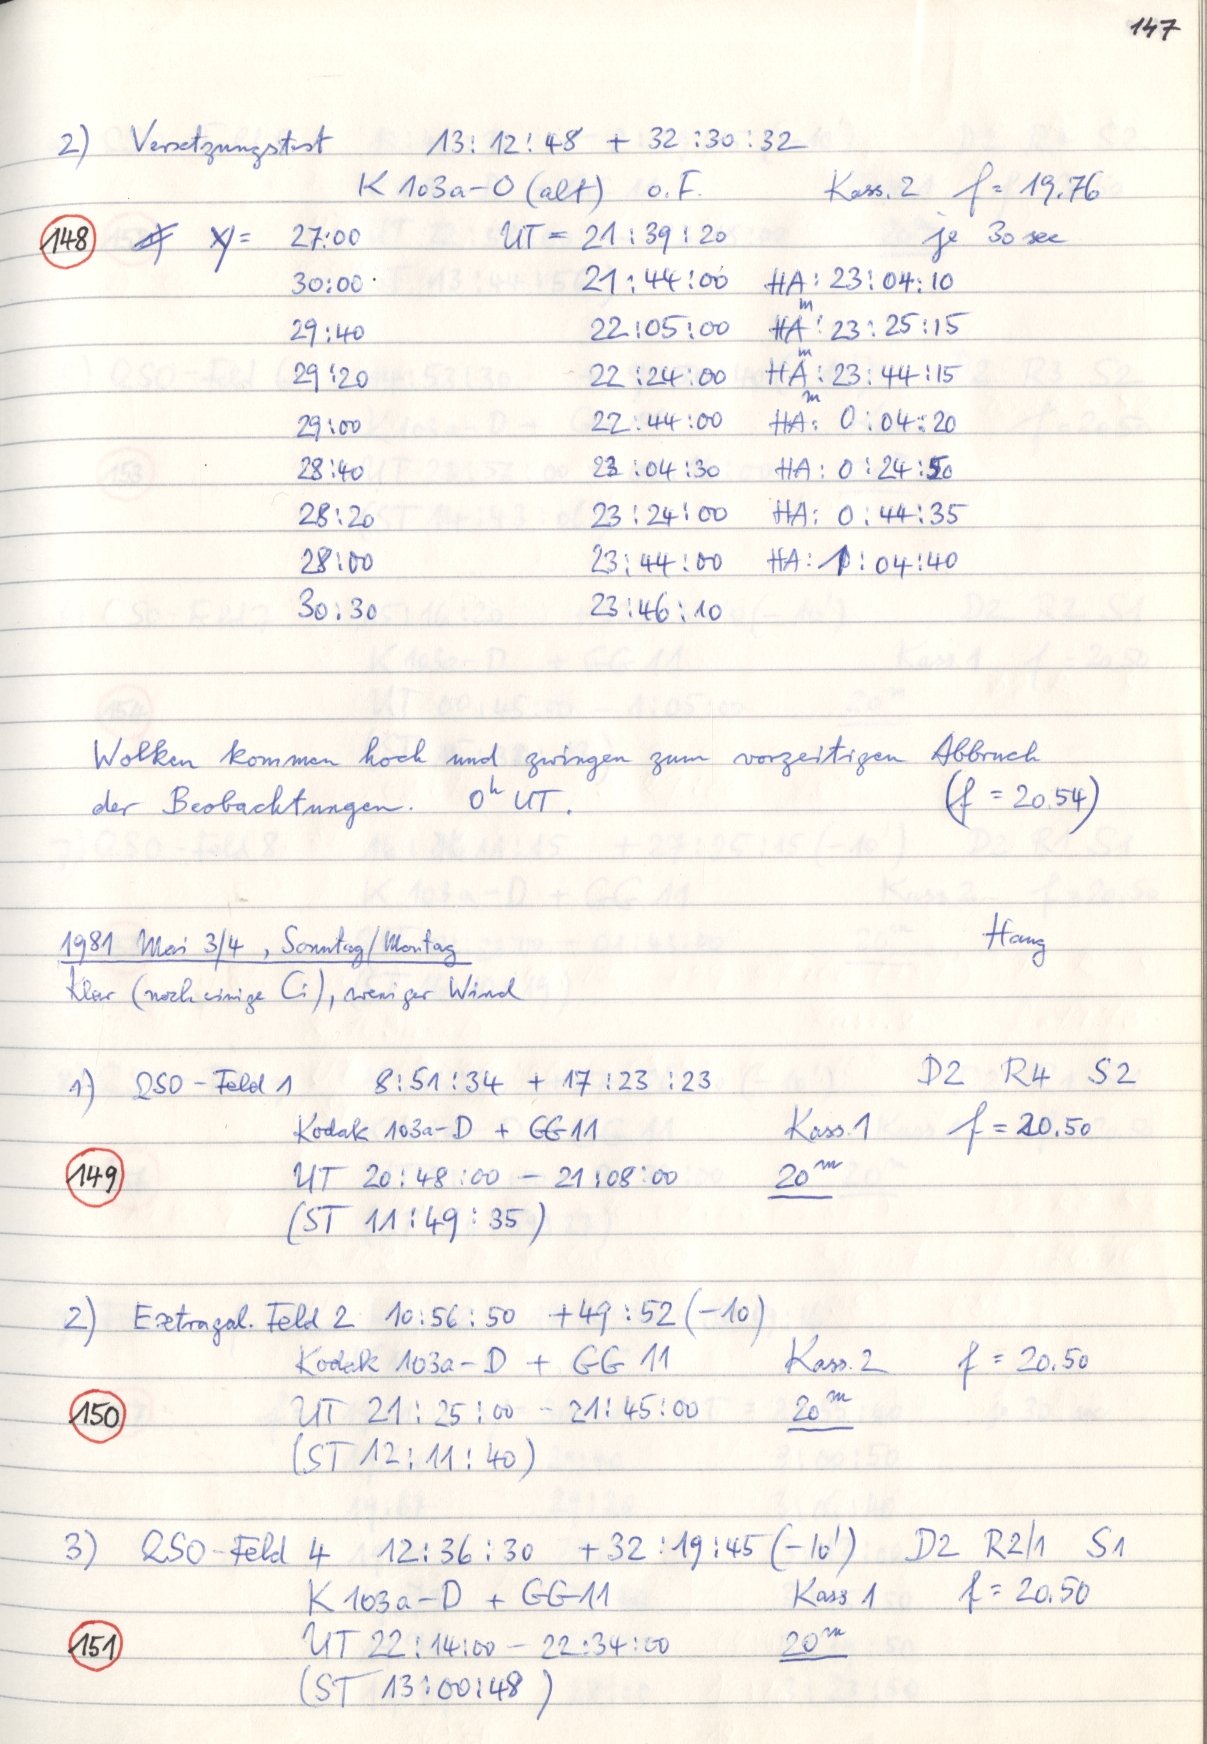 147
2) Versetzungstest 13:12:48 + 32:30:32
K 103a-O (alt) o.F. Kass. 2 f = 19.76
148 y = 27:00 UT = 21:39:20 je 30 sec
30:00 21:44:00 HA: 23:04:10
29:40 22:05:00 HA: 23:25:15
29:20 22:24:00 HA: 23:44:15
29:00 22:44:00 HA: 0:04:20
28:40 23:04:30 HA: 0:24:50
28:20 23:24:00 HA: 0:44:35
28:00 23:44:00 HA: 1:04:40
30:30 23:46:10
Wolken kommen hoch und zwingen zum vorzeitigen Abbruch
der Beobachtungen. 0h UT. (f = 20.54)
1981 Mai 3/4, Sonntag/Montag Haug
Klar (noch einige Ci), weniger Wind
1) QSO-Feld 1 8:51:34 + 17:23:23 D2 R4 S2
Kodak 103a-D + GG11 Kass. 1 f = 20.50
149 UT 20:48:00 - 21:08:00 20m
(ST 11:49:35)
2) Extragal. Feld 2 10:56:50 +49:52 (-10)
Kodak 103a-D + GG 11 Kass. 2 f = 20.50
150 UT 21:25:00 - 21:45:00 20m
(ST 12:11:40)
3) QSO-Feld 4 12:36:30 +32:19:45 (-10') D2 R2/1 S1
K 103a-D + GG11 Kass 1 f = 20.50
151 UT 22:14:00 - 22:34:00 20m
(ST 13:00:48)